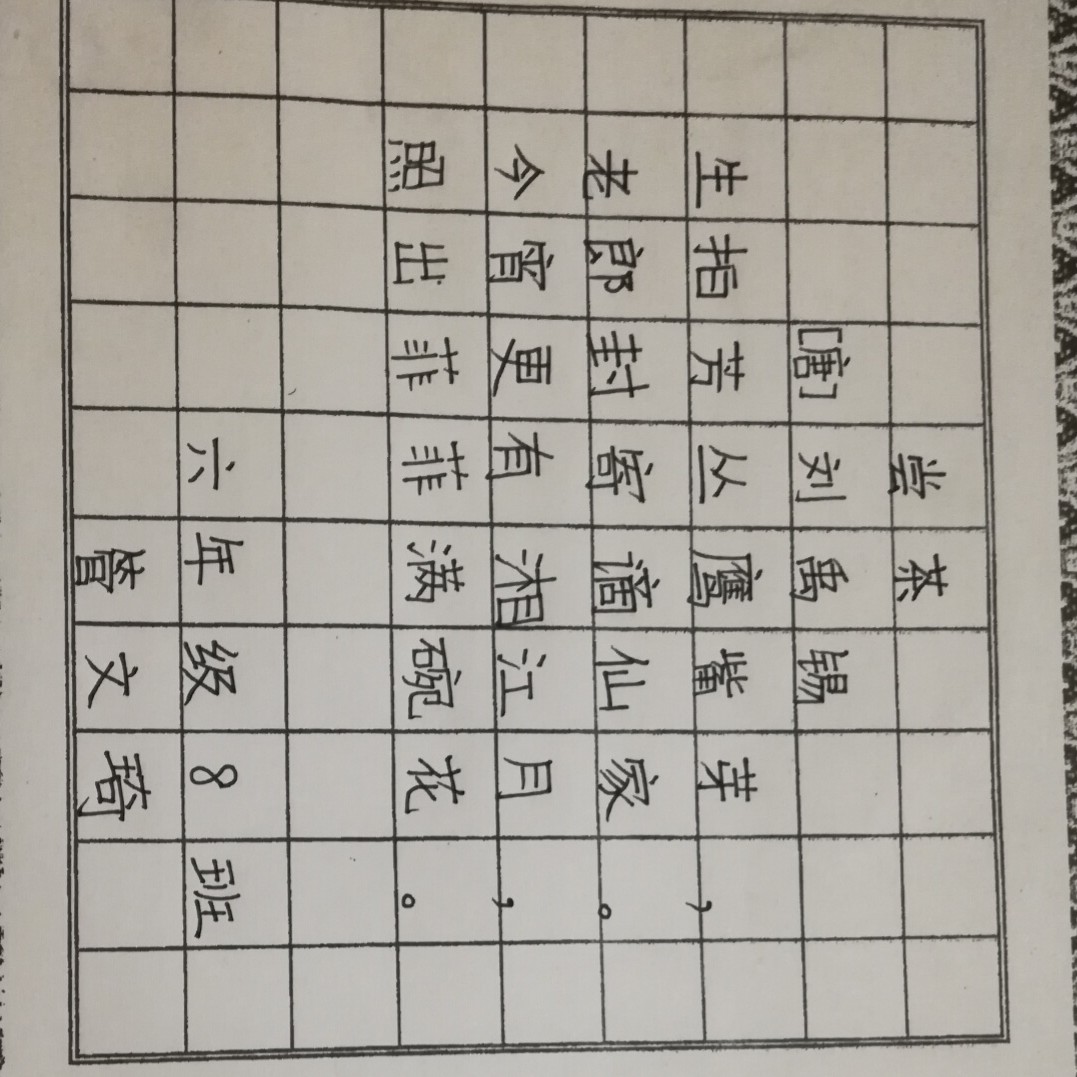 尝茶
[唐]刘禹锡
生拍芳丛鹰觜芽，
老郎封寄谪仙家。
今宵更有湘江月，
照出菲菲满碗花。
六年级8班
管文琦